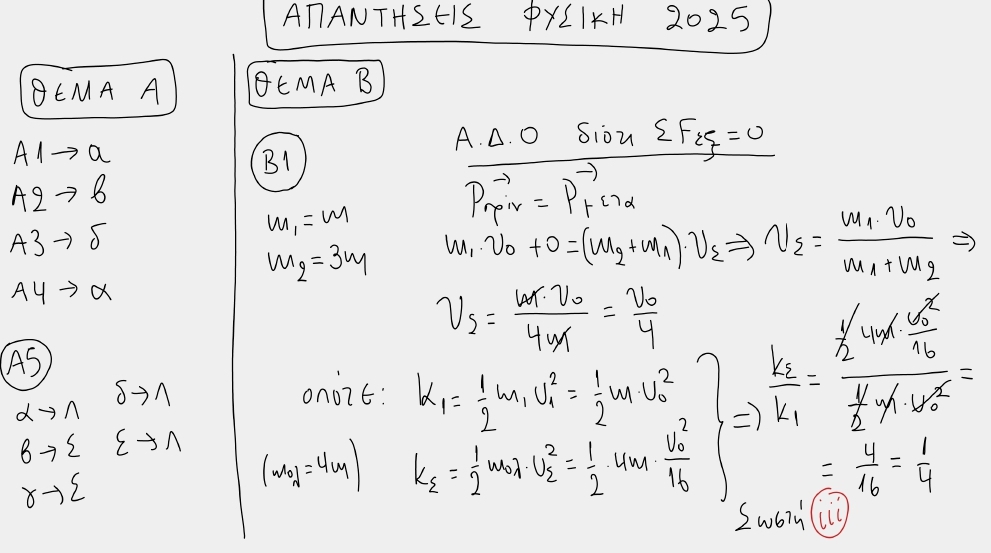 ΑΠΑΝΤΗΣΕΙΣ ΦΥΣΙΚΗ 2025
ΘΕΜΑ Α
Α1 → α
Α2 → β
Α3 → δ
Α4 → α
Α5
α → Λ δ → Λ
β → Σ ε → Λ
γ → Σ
ΘΕΜΑ Β
Β1
m₁ = m
m₂ = 3m
Α.Δ.Ο διότι ΣFεξ = 0
P⃗πριν = P⃗μετα
m₁·υ₀ + 0 = (m₂+m₁)·υΣ ⇒ υΣ = m₁·υ₀ / m₁+m₂ ⇒
υΣ = m·υ₀ / 4m = υ₀/4
οπότε: k₁ = 1/2 m₁υ₁² = 1/2 m·υ₀²
(mολ = 4m) kΣ = 1/2 mολ·υΣ² = 1/2·4m·υ₀²/16
⇒ kΣ/k₁ = (1/2 4m·υ₀²/16) / (1/2 m·υ₀²) =
= 4/16 = 1/4
Σωστή iii